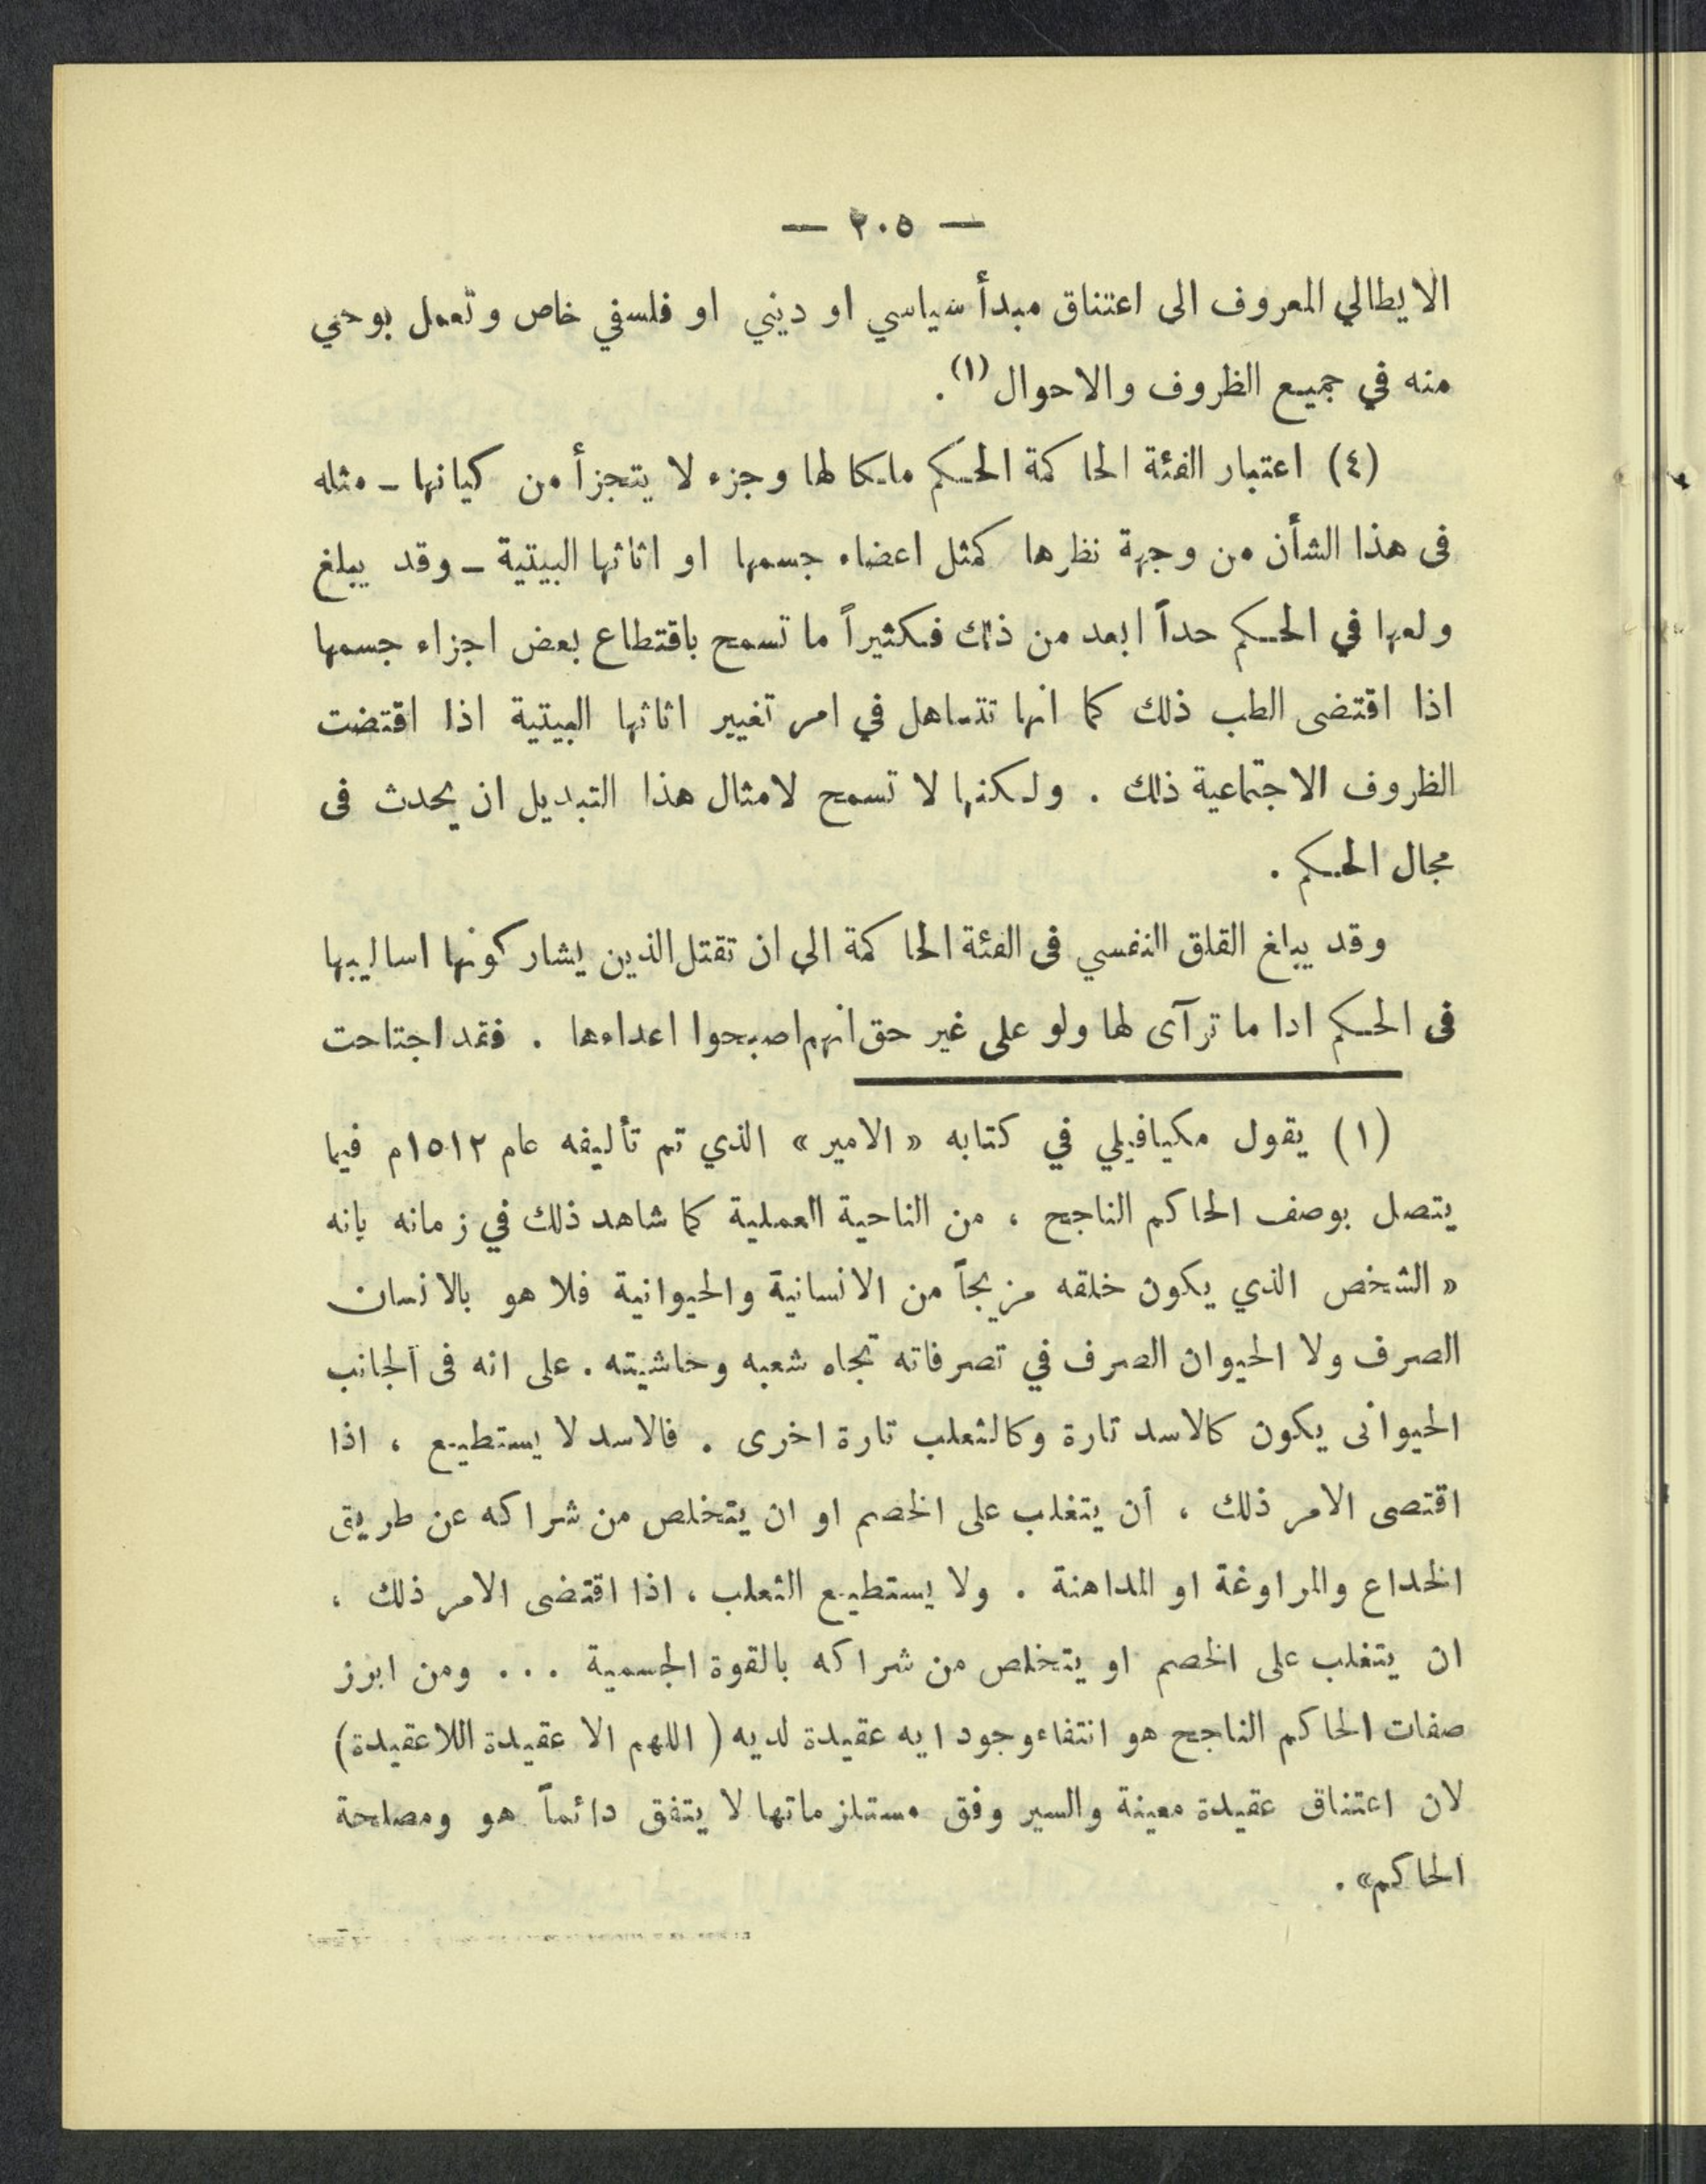 — ٢٠٥ —
الايطالي المعروف الى اعتناق مبدأ سياسي او ديني او فلسفي خاص وتعمل بوحي
منه في جميع الظروف والاحوال (١) .
(٤) اعتبار الفئة الحاكمة الحكم ملكا لها وجزء لا يتجزأ من كيانها ـ مثله
فى هذا الشأن من وجهة نظرها كمثل اعضاء جسمها او اثاثها البيتية ـ وقد يبلغ
ولعها في الحكم حداً ابعد من ذلك فكثيراً ما تسمح باقتطاع بعض اجزاء جسمها
اذا اقتضى الطب ذلك كما انها تتساهل في امر تغيير اثاثها البيتية اذا اقتضت
الظروف الاجتماعية ذلك . ولكنها لا تسمح لامثال هذا التبديل ان يحدث فى
مجال الحكم .
وقد يبلغ القلق النفسي فى الفئة الحاكمة الى ان تقتل الذين يشاركونها اساليبها
فى الحكم اذا ما ترآى لها ولو على غير حق انهم اصبحوا اعداءها . فقد اجتاحت
(١) يقول مكيافيلي في كتابه « الامير » الذي تم تأليفه عام ١٥١٢م فيما
يتصل بوصف الحاكم الناجح ، من الناحية العملية كما شاهد ذلك في زمانه بانه
« الشخص الذي يكون خلقه مزيجاً من الانسانية والحيوانية فلا هو بالانسان
الصرف ولا الحيوان الصرف في تصرفاته تجاه شعبه وحاشيته . على انه فى الجانب
الحيوانى يكون كالاسد تارة وكالثعلب تارة اخرى . فالاسد لا يستطيع ، اذا
اقتصى الامر ذلك ، أن يتغلب على الخصم او ان يتخلص من شراكه عن طريق
الخداع والمراوغة او المداهنة . ولا يستطيع الثعلب ، اذا اقتضى الامر ذلك ،
ان يتغلب على الخصم او يتخلص من شراكه بالقوة الجسمية ... ومن ابرز
صفات الحاكم الناجح هو انتفاء وجود ايه عقيدة لديه ( اللهم الا عقيدة اللاعقيدة )
لان اعتناق عقيدة معينة والسير وفق مستلزماتها لا يتفق دائماً هو ومصلحة
الحاكم» .